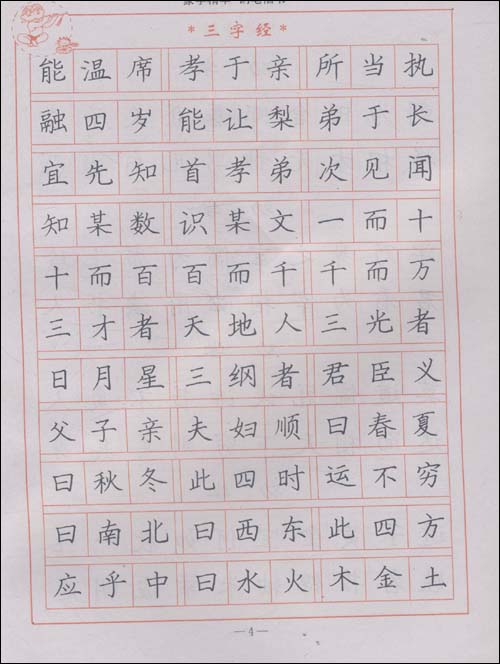 *三字经*
能温席孝于亲所当执
融四岁能让梨弟于长
宜先知首孝弟次见闻
知某数识某文一而十
十而百百而千千而万
三才者天地人三光者
日月星三纲者君臣义
父子亲夫妇顺曰春夏
曰秋冬此四时运不穷
曰南北曰西东此四方
应乎中曰水火木金土
—4—